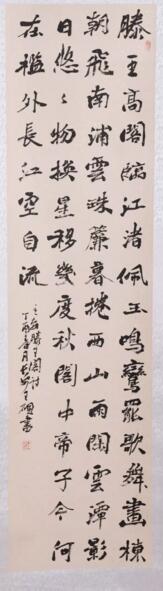 滕王高閣臨江渚佩玉鳴鸞罷歌舞畫棟
朝飛南浦雲珠簾暮捲西山雨閑雲潭影
日悠々物換星移幾度秋閣中帝子今何
在檻外長江空自流
王勃滕王閣詩
書